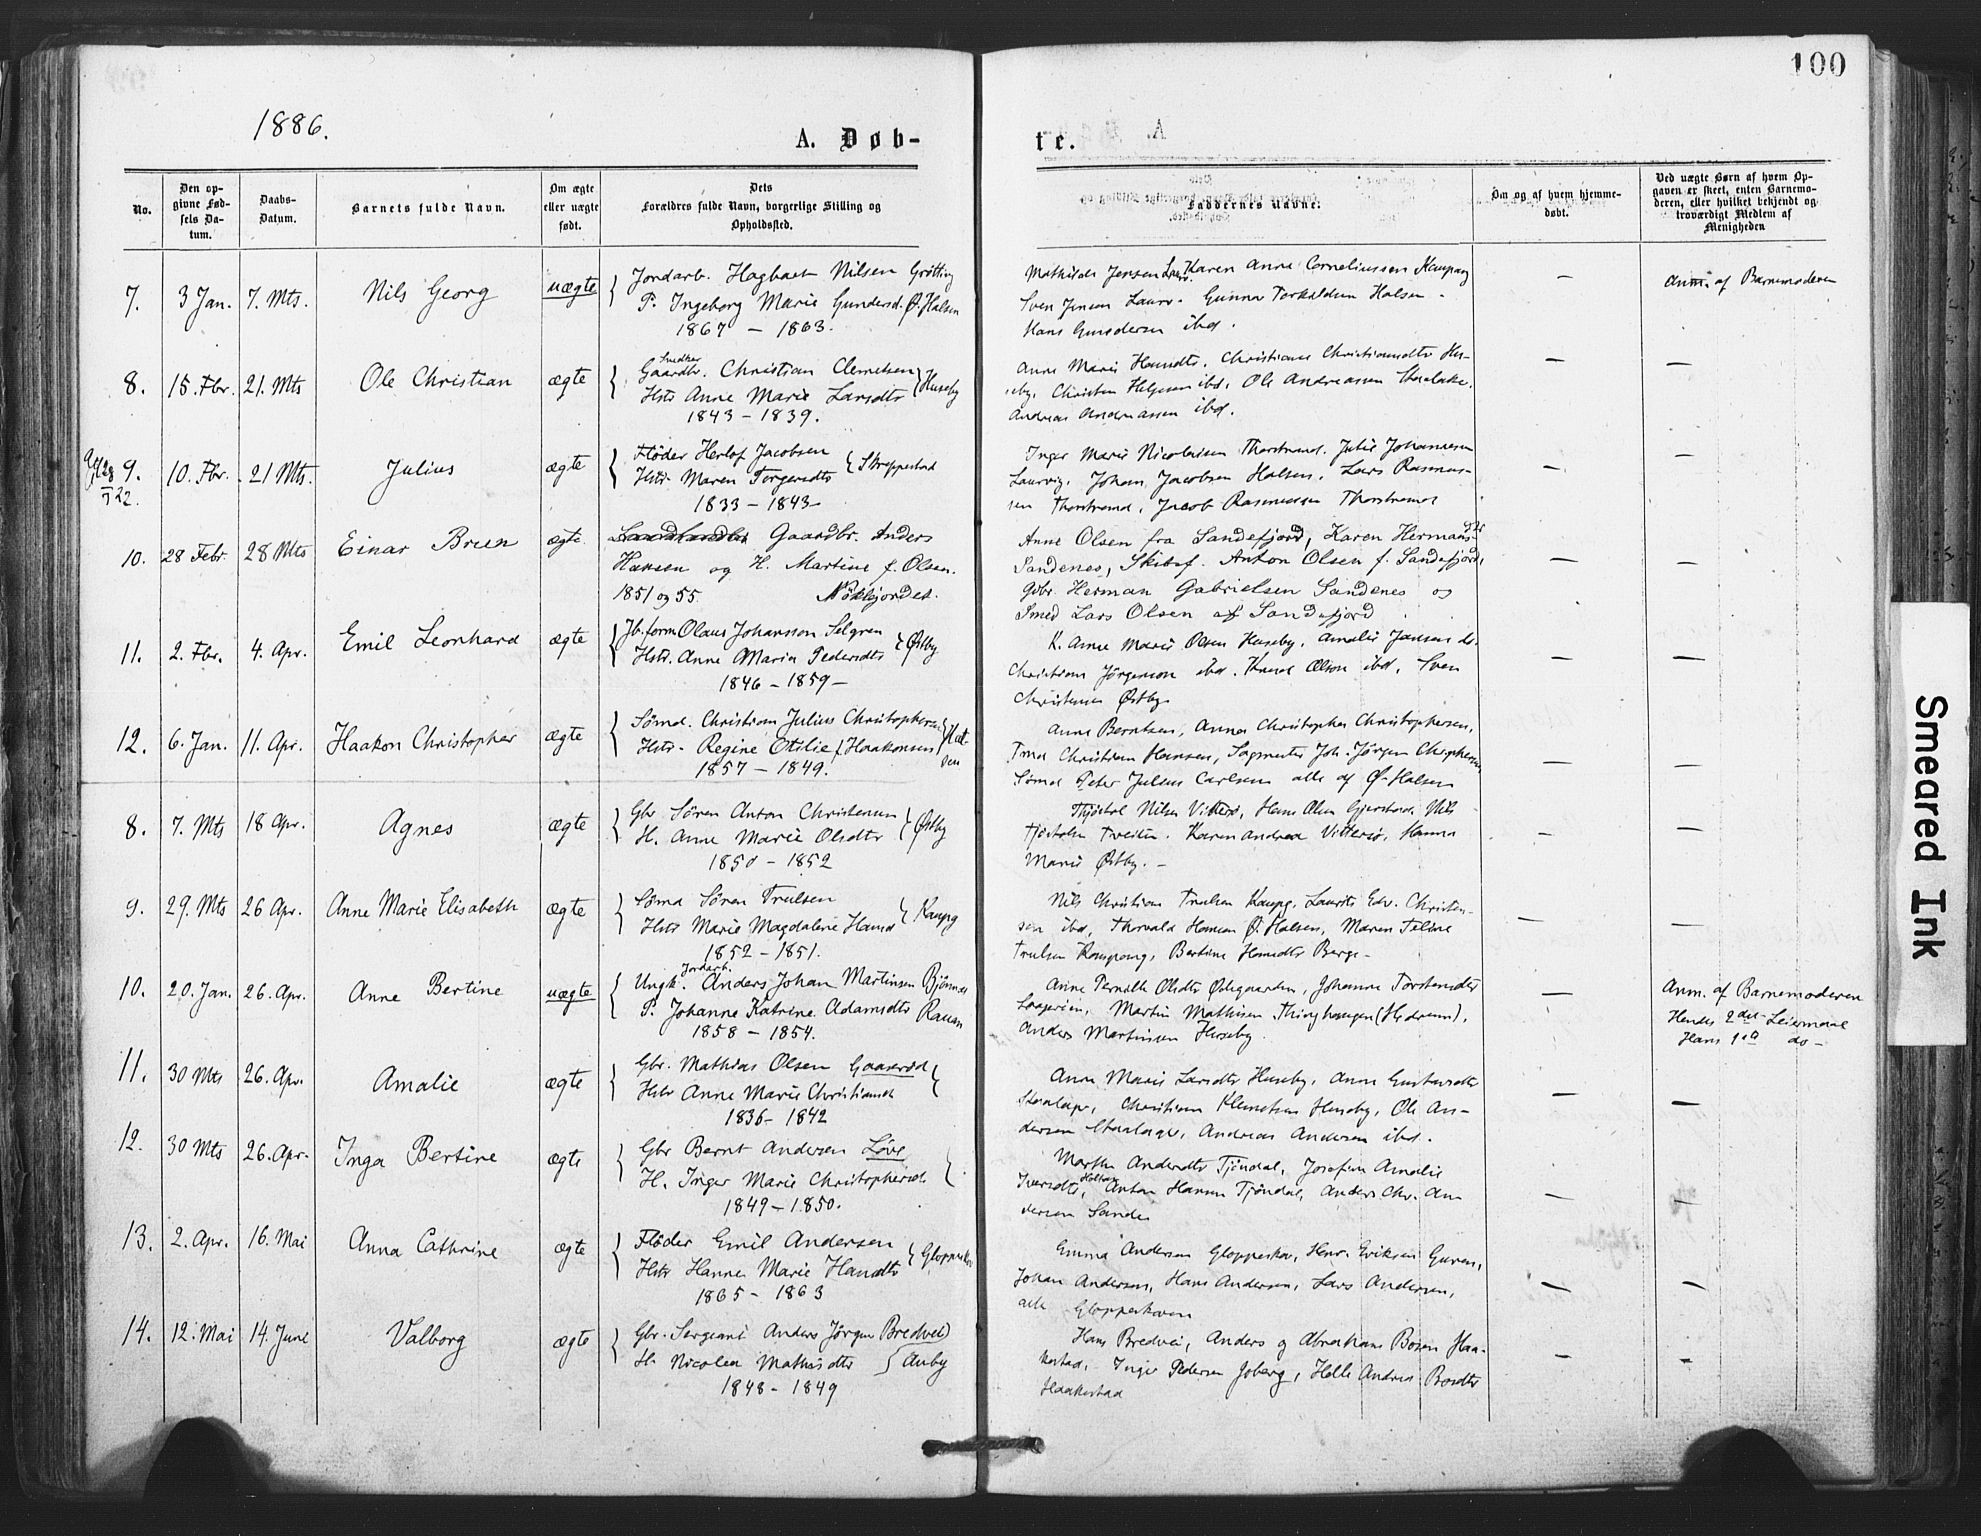 100
1886.
A. Døb-
te.
No.
Den op-
givne Fød-
sels Da-
tum.
Daabs-
Datum.
Barnets fulde Navn.
Om ægte
eller uægte
født.
Dets
Forældres fulde Navn, borgerlige Stilling og
Opholdssted.
Faddernes Navne.
Om og af hvem hjemme-
døbt.
Ved uægte Børn af hvem Op-
gaven er skeet, enten Barnemo-
deren, eller hvilket bekjendt og
troværdigt Medlem af
Menigheden
7. 3 Jan. 7. Mts. Nils Georg uægte
Jordarb. Hagbart Nilsen Grötting
P. Ingeborg Marie Gundersd. Ø. Halsen
1867 – 1863.
Mathilde Jensen Laurv. Karen Anne Corneliussen Kaupang
Sven Jensen Laurv. Gunna Torkildsen Halsen
Hans Gundersen ibd.
— Anm. af Barnemoderen
8. 15. Fbr. 21. Mts Ole Christian ægte
Snedker
Gaardbr. Christian Clemetsen
Hstr Anne Marie Larsdtr Huseby
1843 – 1839.
Anne Marie Hansdtr, Christiane Christiansdtr Hu-
seby, Christen Helgesen ibd, Ole Andreassen
Andreas Andreassen ibd.
— —
9. 10. Fbr. 21 Mts. Julius ægte
Fløder Herlof Jacobsen
Hstr. Maren Torgersdtr Skreppestad
1833 – 1843
Inger Marie Nicolaisen Thorstrand, Julie Johannesen
Laurvig, Johan Jacobsen Halsen, Lars Rasmus-
sen Thorstrand, Jacob Rasmussen Thorstrand
— —
10. 28 Febr. 28 Mts Einar Bruen ægte
Gaardbr. Anders
Hansen og H. Martine f. Olsen.
1851 og 55. Nøklejordet.
Anne Olsen fra Sandefjord, Karen Hermansdtr
Sandenes, Skibsf. Anton Olsen f. Sandefjord,
Gbr. Herman Gabrielsen Sandenes og
Smed Lars Olsen af Sandefjord
— —
11. 2. Fbr. 4. Apr. Emil Leonhard ægte
Jb.form Olaus Johansson Selgren
Hstr. Anne Maria Pedersdtr Østby
1846 – 1859 –
K. Anne Marie Olsen Huseby, Amalie Jansen do.
Christian Jørgensen ibd. Knud Olsen ibd, Sven
Christensen Østby
— —
12. 6. Jan. 11. Apr. Haakon Christopher ægte
Sømd. Christian Julius Christophersen
Hstr. Regine Otilie Haakonsen Hal-
sen
1857 – 1849.
Anne Berntsen, Anna Christophersen,
Christian Hansen, Sagmester Joh. Jørgen
Sømd Peter Julius Carlsen alle af Ø. Halsen
— —
8. 7. Mts 18 Apr. Agnes ægte
Gbr Søren Anton Christensen
H. Anne Marie Olsdtr Østby
1850 – 1852
Thjostol Nilsen Vittersø, Hans Olsen Gjerstad. Nils
Tjostolsen Tveiten. Karen Andrea Vittersø, Hanna
Marie Østby. –
— —
9. 29. Mts 26 Apr. Anne Marie Elisabeth ægte
Sømd Søren Trulsen
Hstr Marie Magdalene Hansd Kaupg
1852 – 1851.
Nils Christian Trulsen Kaupg, Laurits Edv. Christen-
sen ibd, Thorvald Hansen Ø. Halsen, Maren Teline
Trulsen Kaupang, Bertine Hansdtr Berge –
— —
10. 20. Jan. 26. Apr. Anne Bertine uægte
Jordarb.
Ungk. Anders Johan Martinsen Bjønnes
P. Johanne Katrine Adamsdtr Rauan
1858 – 1854.
Anne Pernille Olsdtr Ødegaarden, Johanne Torstensdtr
Martin Mathisen Thinghaugen (Hedrum),
Anders Martinsen Huseby.
— Anm. af Barnemoderen
Hendes 2det Leiermaal
Hans 1ste do –
11. 30 Mts 26. Apr. Amalie ægte
Gbr. Mathias Olsen Gaaserød
Hstr Anne Marie Christiansd.
1836 – 1842
Anne Marie Larsdtr Huseby, Anne Gustavsdtr
Christian Klemetsen Huseby, Ole An-
dersen Andreas Andersen ibd.
— —
12. 30 Mts 26. Apr. Inga Bertine ægte
Gbr Bernt Andersen Løve
H. Inger Marie Christophersd.
1849 – 1850.
Marthe Andersdtr Tjøndal, Josefine Amalie
Iversdtr, Anton Hansen Tjøndal, Anders Chr. An
dersen Sande
— —
13. 2. Apr. 16. Mai Anna Cathrine ægte
Fløder Emil Andersen
Hstr Hanne Marie Hansdtr Gloppeskov
1865 – 1863
Emma Andersen Gloppeskov, Henr. Eriksen
Johan Andersen, Hans Andersen, Lars Andersen,
alle Gloppeskoven
— —
14. 12. Mai 14. June Valborg ægte
Gbr. Sergeant Anders Jørgen Bredvei
H. Nicolea Mathisdtr Auby
1848 – 1849
Hans Bredvei, Anders og Abraham Bosen Haa-
kestad, Inger Pedersen Joberg, Helle Andrea Bosdtr
Haakestad
— —
Smeared Ink